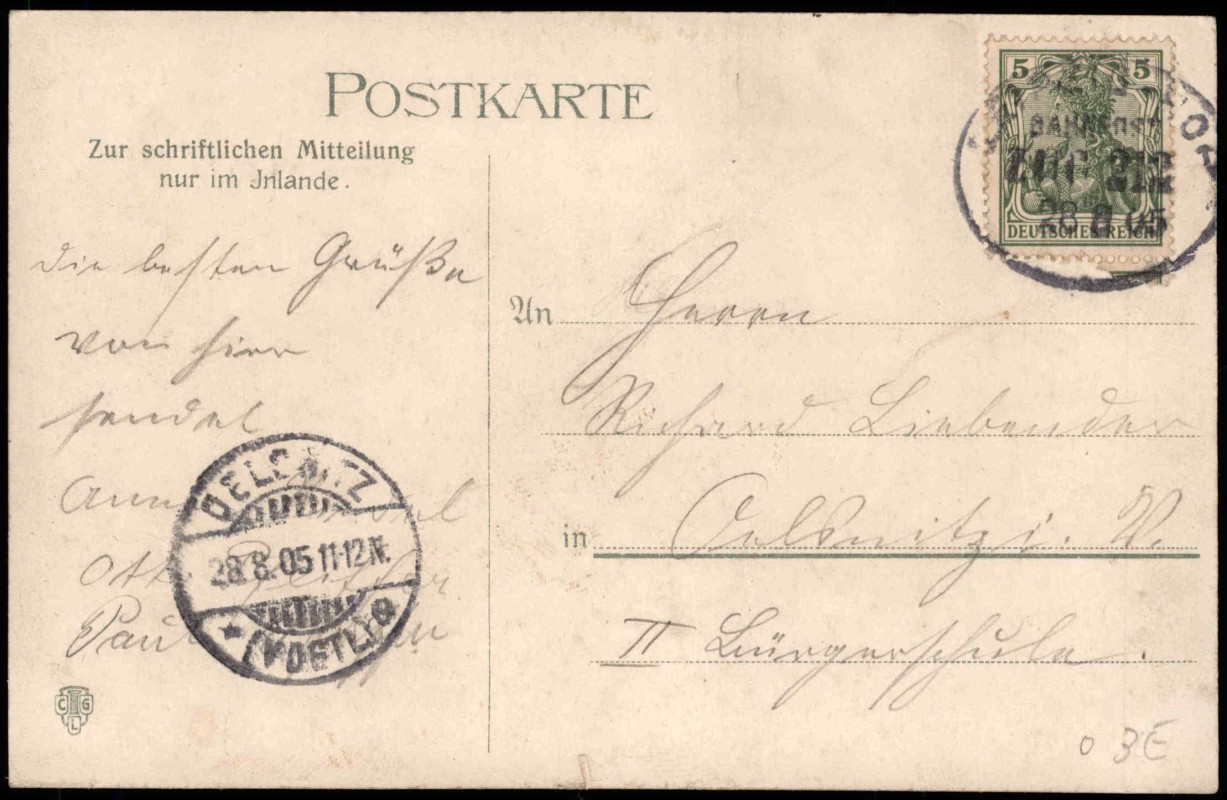 POSTKARTE
Zur schriftlichen Mitteilung
nur im Jnlande.
die besten Grüße
von hier
sendet
Otto
Paul
OELSNITZ
28.8.05 11-12N.
* (VOGTL.)
C G
L
5 5
DEUTSCHES REICH
BAHNPOST
ZUG 212
28 8 05
An Herrn
Richard Liebender
in Oelsnitz i. V.
II Bürgerschule.
0 3E